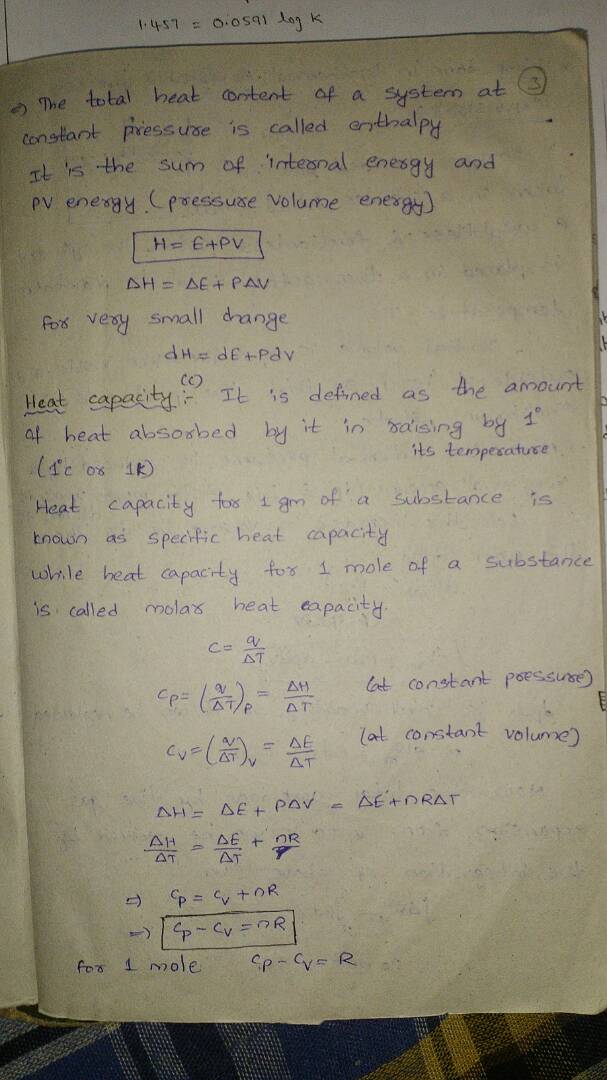 1.457 = 0.0591 log K
3
⇒ The total heat content of a system at
constant pressure is called enthalpy
It is the sum of internal energy and
PV energy (pressure volume energy)
H = E+PV
ΔH = ΔE + PΔV
for very small change
dH = dE + PdV
Heat capacity (C) :- It is defined as the amount
of heat absorbed by it in raising by 1°
its temperature
(1°c or 1K)
Heat capacity for 1 gm of a substance is
known as specific heat capacity
while heat capacity for 1 mole of a substance
is called molar heat capacity.
C = q/ΔT
Cp = (q/ΔT)p = ΔH/ΔT (at constant pressure)
Cv = (q/ΔT)v = ΔE/ΔT (at constant volume)
ΔH = ΔE + PΔV = ΔE + nRΔT
ΔH/ΔT = ΔE/ΔT + nR
⇒ Cp = Cv + nR
⇒ Cp - Cv = nR
for 1 mole Cp - Cv = R